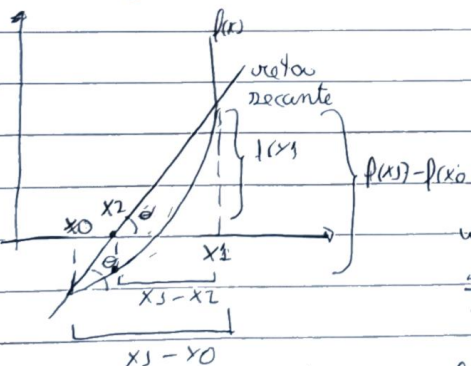 f(x)
reta
secante
f(x1
f(x1)-f(x0
x0
x2
θ
θ
x1
x1-x2
x1-x0